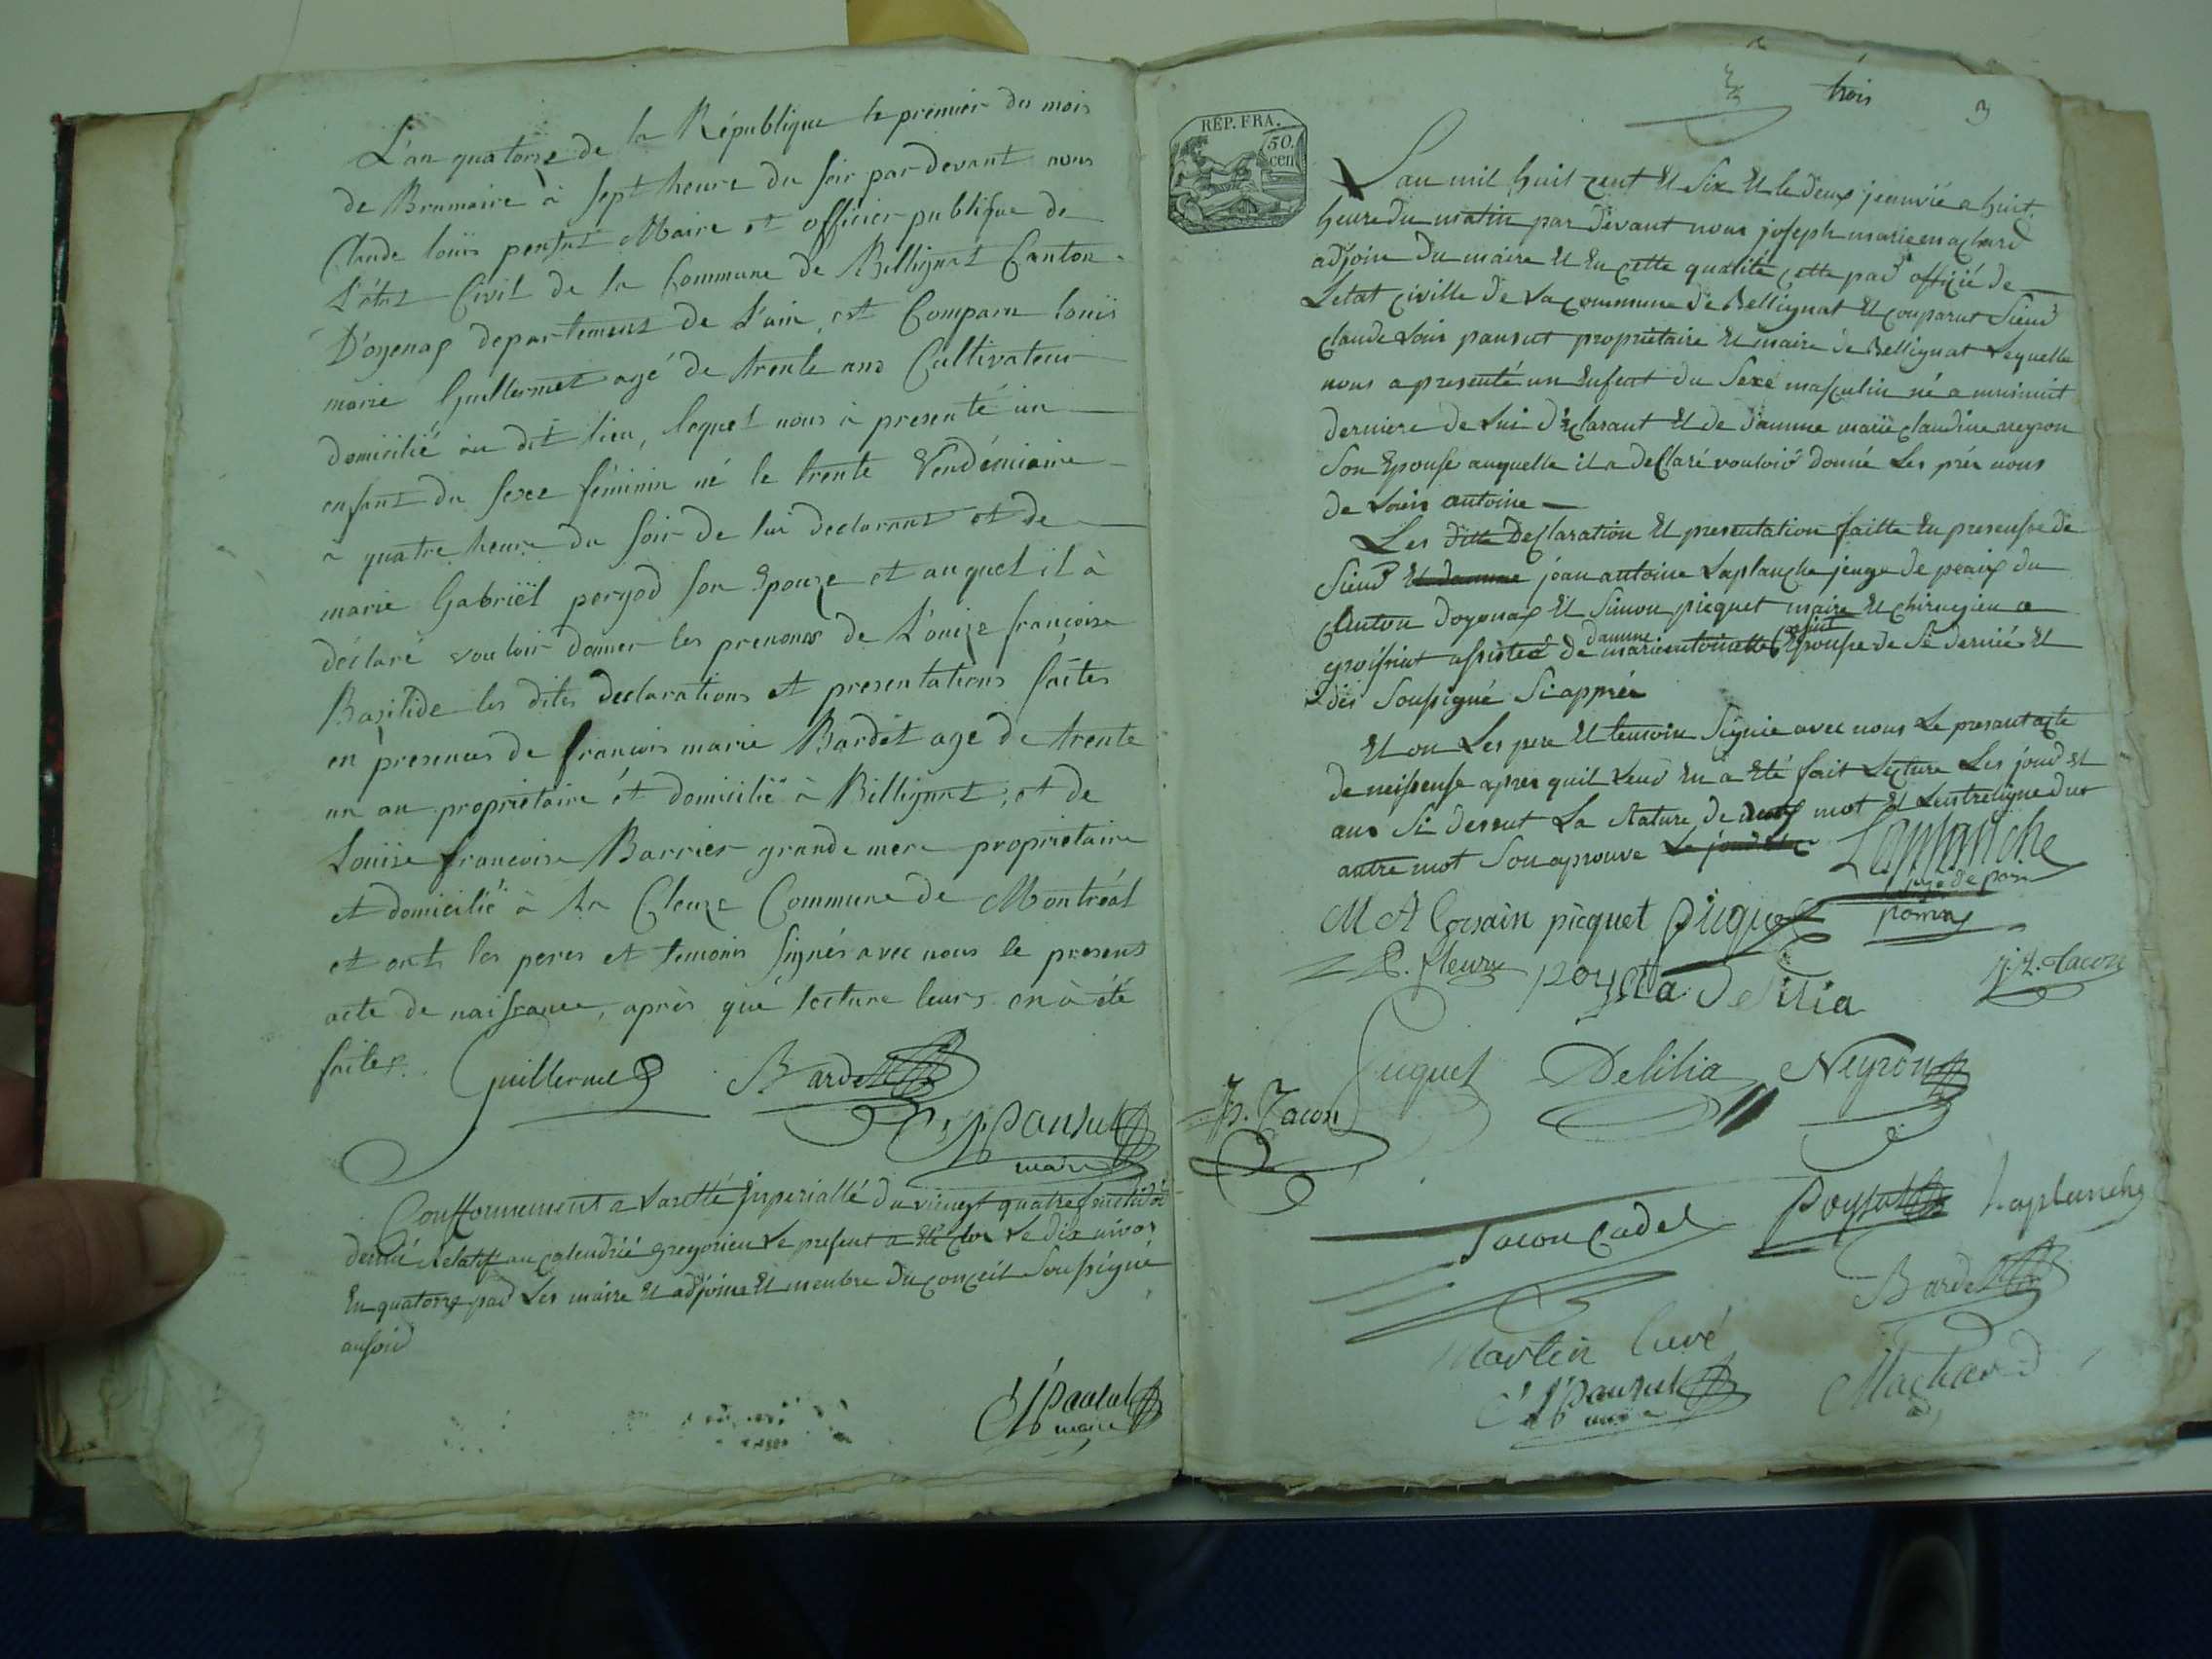 L'an quatorze de la République le premier du mois
de Brumaire à sept heure du soir pardevant nous
Claude louis pensut Maire et officier publique de
L'état Civil de la Commune de Billignat Canton
D'oyenax departement de L'ain, est Comparu louis
marie Guillermet agé de trente ans Cultivateur
domicilié au dit lieu, lequel nous à presenté un
enfant du sexe féminin né le trente Vendémiaire
a quatre heure du soir de lui declarant et de
marie Gabriël pergod son Epouze et auquel il à
déclaré vouloir donner les prenoms de L'ouize françoise
Bazilide les dites declarations et presentations faites
en presences de francois marie Bardet age de trente
un an proprietaire et domicilié à Billignat, et de
Louise francoise Barrier grande mere proprietaire
et domicilié à La Cleuze Commune de Montréal
et onts les peres et temoins signés avec nous le present
acte de naissance, après que lecture leurs en à été
faites.
Guillermet Bardet
C L Pansut
maire
Confformement a Laretté Imperiallé du vinegt quatre
dernié Relatif au Calendrié gregorien Le present a été clos Le dix nivos
En quatorze par Les maire Et adjoint Et menbre du conceil Soussigné
C L Pansut
maire
trois
3
RÉP. FRA.
50.
cen
Lan mil huit cent Et six Et le deux jeanvié a huit
heure du matin par devant nous joseph marie machard
adjoin du maire Et En cette qualité cette par officié de
Letat civille de La commune de Bellignat Et couparut Sieur
claude Louis pansut proprietaire Et maire de Bellignat Lequelle
nous a presenté un Enfent du Sexe masculin né a minuit
derniere de Lui déclarant Et de damme marie claudine neyron
Son Epouse auquelle il a declaré vouloir donné Les pré nous
de Louis antoine
Les ditte Declaration Et presentation faitte En presensse de
Sieur Et damme jean antoine Laplanche jeuge de peaix du
Canton doyonax Et Simon picquet maire Et chirugien a
groissiat assisteé de damme marie antoinette Epousse de Sé dernié Et
dés Soussigné Si apprés
Et on Les pere Et temoin Signie avec nous Le presant acte
de neissense apres quil Leur En a Eté fait Lecture Les jour Et
ans Si dessut La Rature de deux mot Et Lentreligne dun
autre mot Son aprouve Le jour Et
Laplanche
juge de paix
M A Corsain picquet picquet
fleury
Delilia
J. Z. Tacon
Juguet Delilia Neyron
Jh. Tacon
Tacon Cadet Poysat Laplanche
Bardet
Martin Curé
C L Pansut
maire
Machard